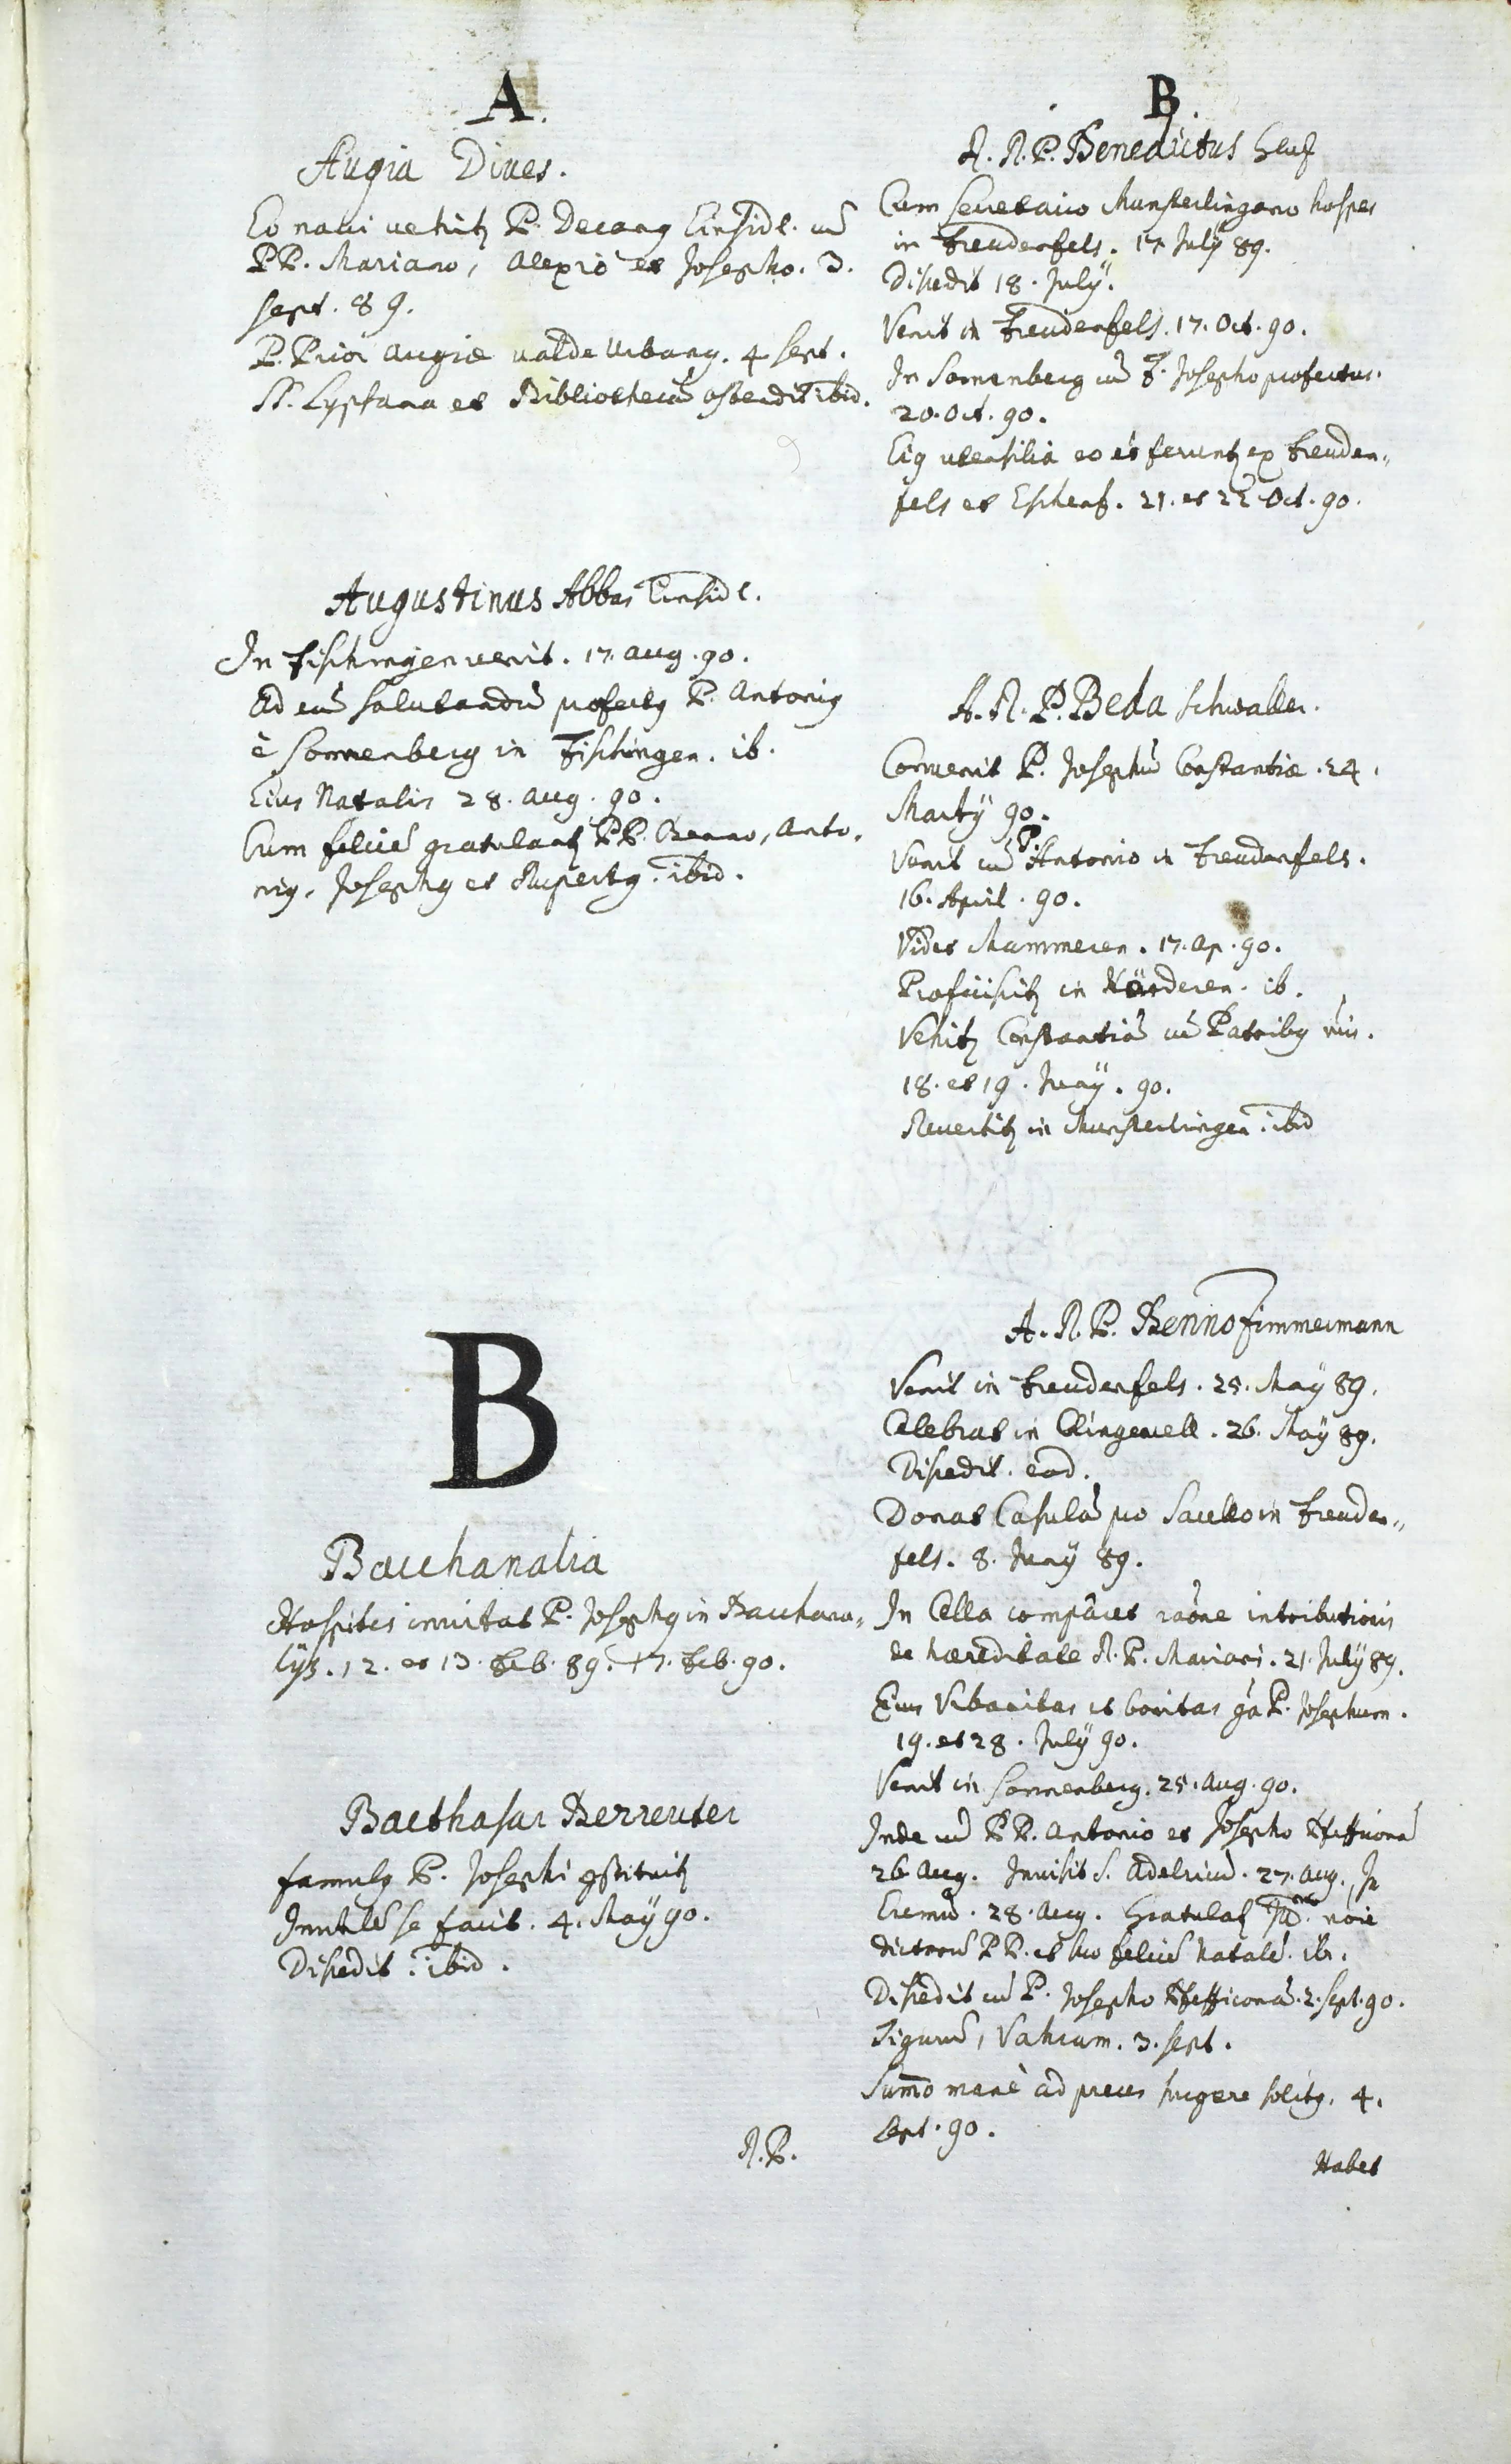 A.
Augia Diues.
Eo naui uehitʒ P. Decanꝯ Einsidl. cū
PP. Mariano, Alexio et Josepho. 3.
sept. 89.
P. Prior Augiæ ualde Urbanꝯ. 4 sept.
SS. Lypsana et Bibliothecā ostendit ibid.
Augustinus Abbas Einsidl.
In Fischingen uenit. 17. aug. 90.
Ad eū salutandū profectꝯ P. Antoniꝯ
è Sonnenberg in Fischingen. ib.
Eius Natalis 28. aug. 90.
Cum felicē gratulantʒ PP. Benno, Anto-
niꝯ, Josephꝯ et Rupertꝯ. ibid.
B
Bacchanalia
Hospites inuitat P. Josephꝯ in Bacchana-
lijs. 12. et 13. Feb. 89. 17. Feb. 90.
Balthasar Berreuter
famulꝯ P. Josephi ꝯstituitʒ
Inutilē se facit. 4. Maÿ 90.
Discedit. ibid.
R.P.
B.
A. R. P. Benedictus
Cum Secretario Munsterlingano hospes
in Freudenfels. 17 Julÿ 89.
Discedit 18. Julÿ.
Venit in Freudenfels. 17. Oct. 90.
In Sonnenberg cū P. Josepho profectus.
20. Oct. 90.
Eiꝯ utensilia eo feruntʒ ex Freuden-
fels et Eschenz. 21. et 22 Oct. 90.
A. R. P. Beda Schwaller.
Conuenit P. Josephū Constantiæ. 24.
Martÿ 90.
Venit cū P. Antonio in Freudenfels.
16. April. 90.
Videt Mammeren. 17. Ap. 90.
Proficiscitʒ in ib.
Vehitʒ Constantiā cū Patribꝯ
18. et 19. Junÿ. 90.
Reuertitʒ in Munsterlingen. ibid
A. R. P. Benno Zimmermann
Venit in Freudenfels. 25. Maÿ 89.
Celebrat in Clingenzell. 26. Maÿ 89.
Discedit. eod.
Donat Casulā pro Sacello in Freuden-
fels. 8. Junÿ 89.
In Cella comparet raōne intributionis
de hæreditate R. P. Mariani. 21. Julÿ 89.
Eius Vrbanitas et bonitas ga P. Josephum.
19. et 28. Julÿ 90.
Venit in Sonnenberg. 25. Aug. 90.
Inde cū PP. Antonio et Josepho Pfefficonā
26 Aug. Inuisit S. Adelricū. 27. Aug. In
Eremū. 28. Aug. Gratulatʒ noīe
dictorū PP. et suo felicē Natalē. ib.
Discedit cū P. Josepho Pfefficonā. 2. Sept. 90.
Tigurū, Vahrum. 3. sept.
Sum̄o manè ad preces surgere solitꝯ. 4.
Sept. 90.
Habet